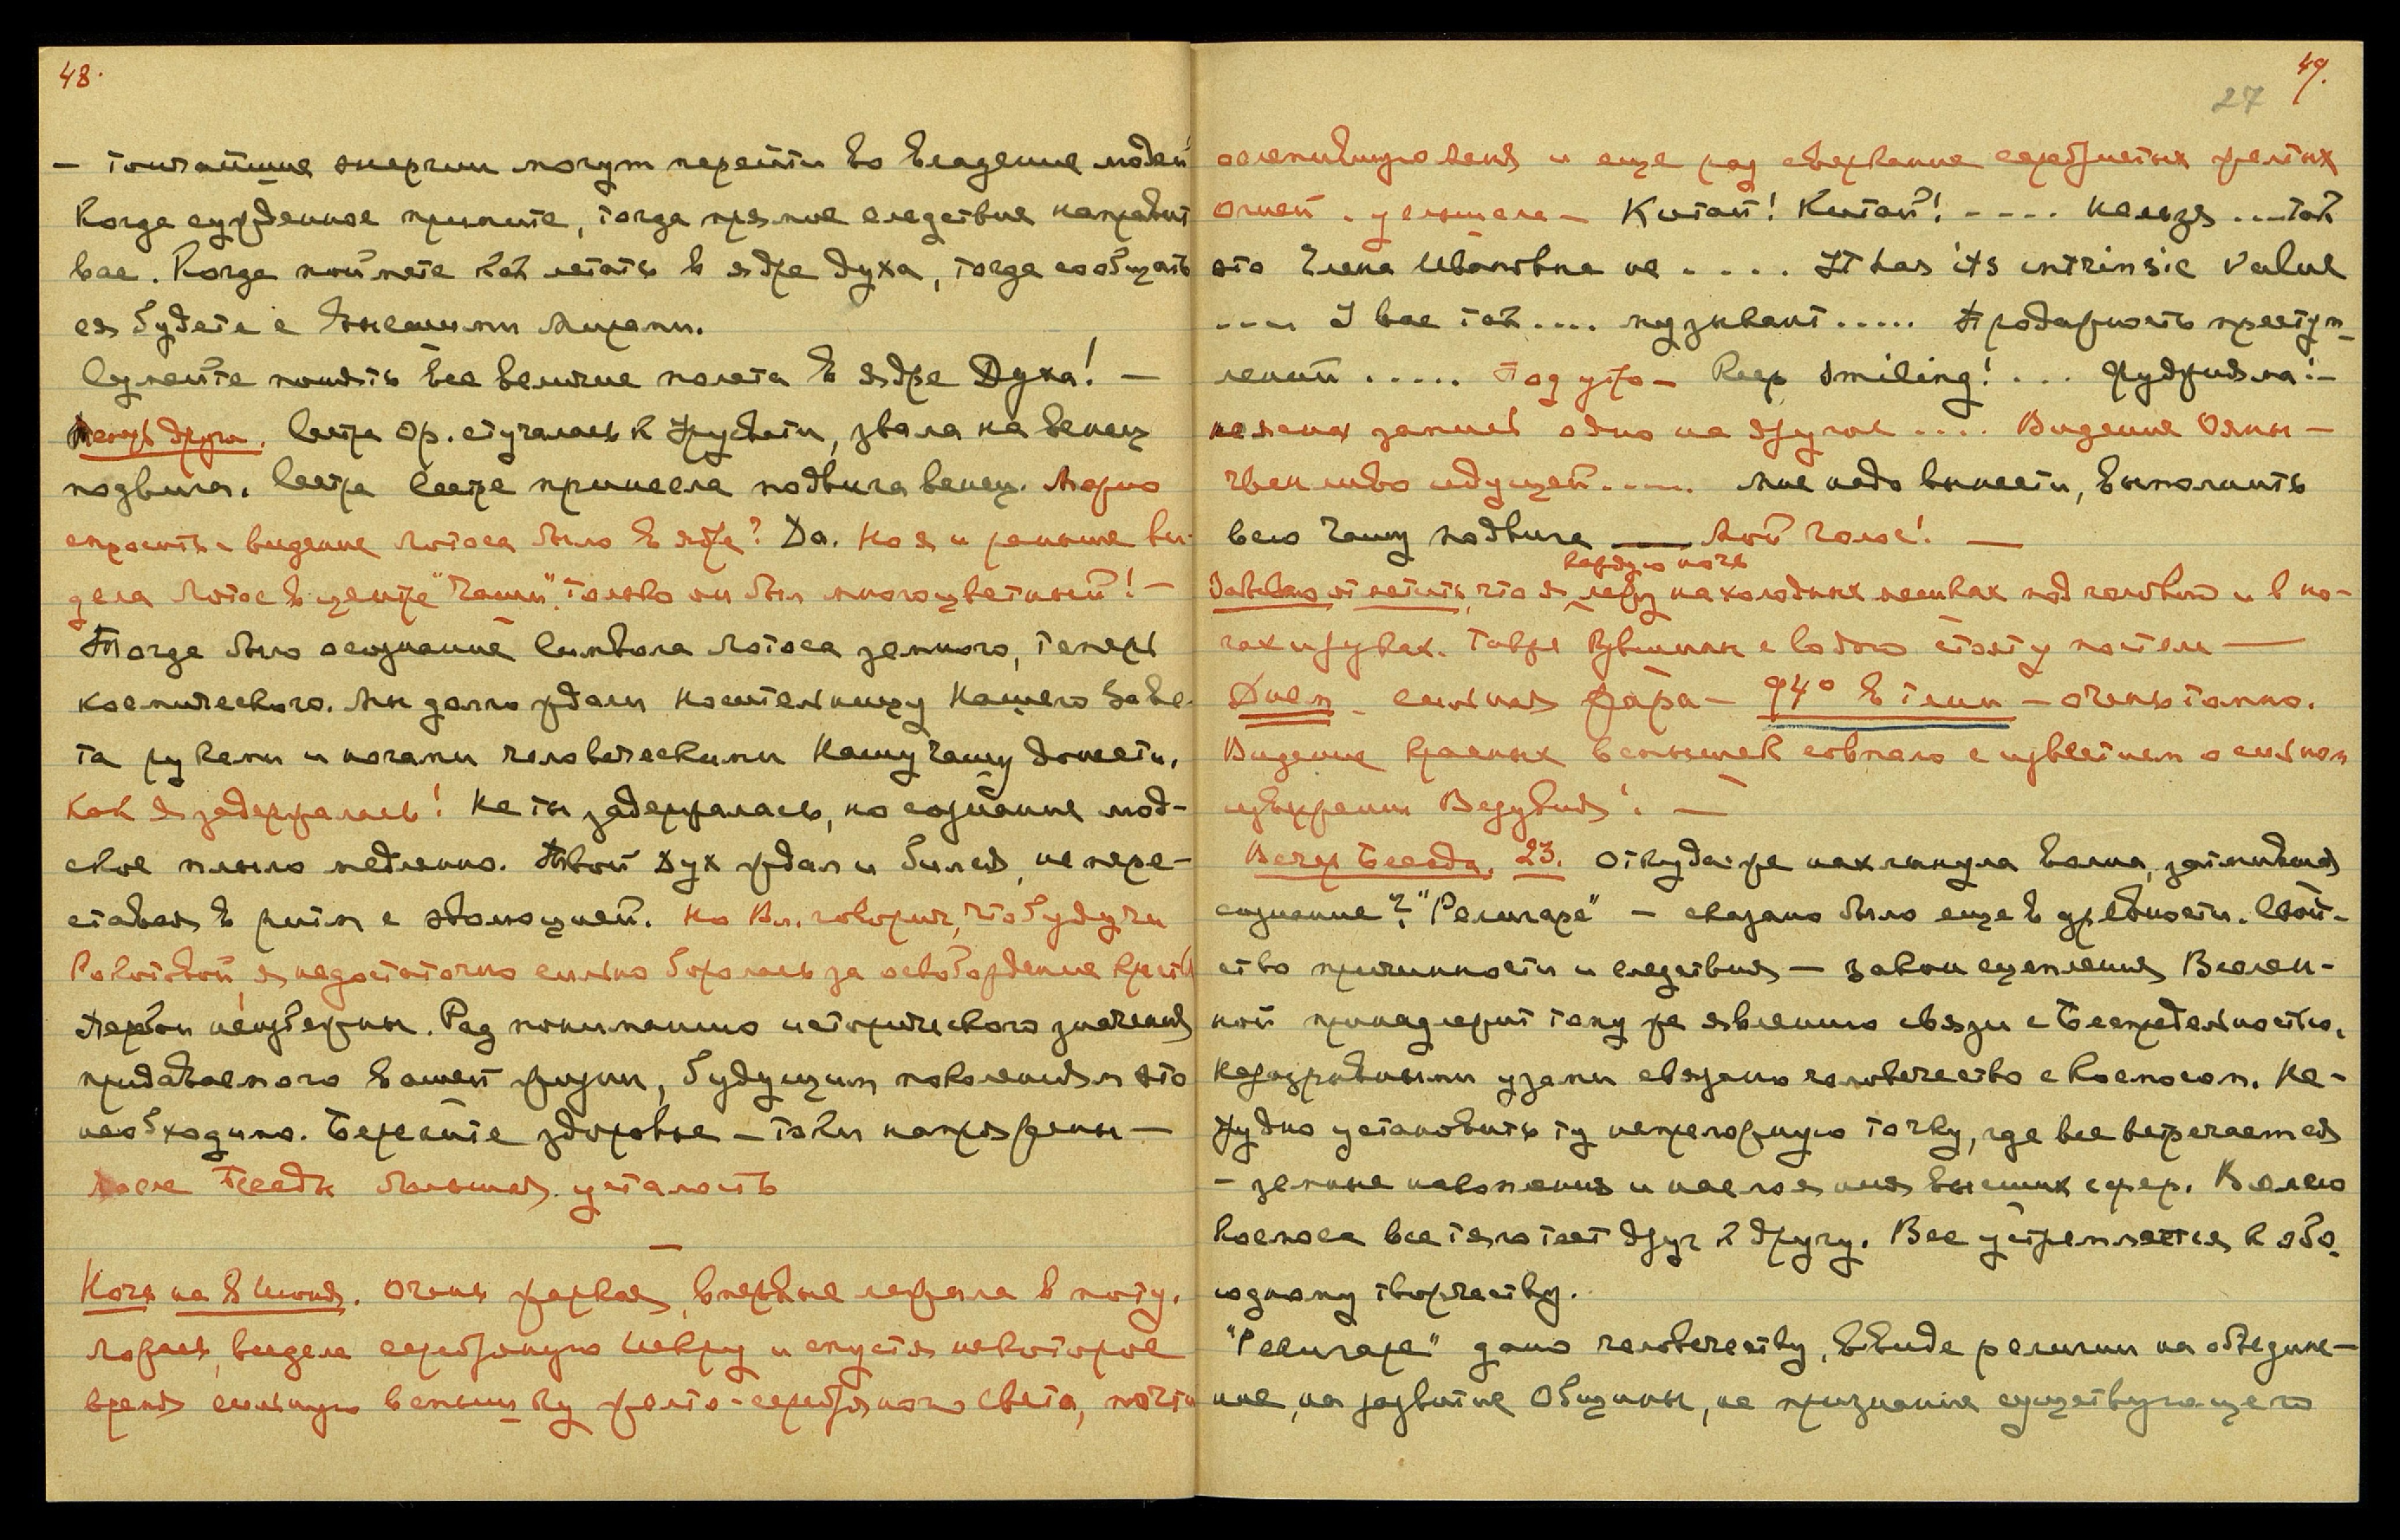 48.
— тончайшие энергии могут перейти во владение людей
Когда сужденное примите, тогда прямое следствие направит
вас. Когда поймете как летать в ядре духа, тогда сообщать
ся будете с высшими Мирами.
Сумейте понять все величие полета в ядре Духа! —
Сестра Ор. стучалась к Грусти, звала на венец
подвига. Сестра Сестре принесла подвига венец. Можно
спросить - видение Лотоса было в ядре? Да. Но я и раньше ви-
дела Лотос в центре "Чаши". Только он был многоцветный! —
Тогда было осознание Символа Лотоса земного, теперь
космического. Мы долго ждали носительницу Нашего Заве-
та руками и ногами человеческими Нашу Чашу донести.
Как я задержалась! Не ты задержалась, но сознание люд-
ское плыло медленно. Твой Дух ждал и бился, не пере-
ставая в ритм с эволюцией. Но Вл. говорил, что будучи
я недостаточно сильно боролась за освобождение
неизбежны. Рад пониманию исторического значения
придаваемого Вашей жизни, будущим поколениям это
необходимо. Берегите здоровье — токи напряжены —
После Беседы большая усталость
—
Ночь на 8 Июня. Очень жаркая, впервые лежала в поту.
Ложась, видела серебряную Искру и спустя некоторое
время сильную вспышку желто-серебряного света, почти
49.
27
ослепившую меня и еще раз сверкание серебристых желтых
огней. услышала — Китай! Китай! - - - - нельзя ... так
это Елена Ивановна не . . . . It has its intrinsic value
---- I вас так .... музыкант ..... Продажность преступ-
лений ..... Под утро — Keep smiling! ...
неясная запись одно на другое .... Видение Ояны —
идущей..... мне надо вынести, выполнить
всю Чашу подвига —— Мой голос! —
каждую ночь
Забываю отметить, что я лежу на холодных мешках под головой и в но-
гах и руках. Также с водою стоят у постели ——
Днем - сильная жара — 94° в тени — очень томно.
Видение красных вспышек совпало с известием о сильном
извержении Везувия! —
Вечер Беседа. 23. Откуда же нахлынула волна, затмившая
сознание? "Религаре" — сказано было еще в древности. Свой-
ство причинности и следствия — закон сцепления Вселен-
ной принадлежит тому же явлению связи с Беспредельностью.
Неразрывными узами связано человечество с Космосом. Не-
трудно установить ту непреложную точку, где все встречается
— земные накопления и наслоения высших сфер. Волею
Космоса все тяготеет друг к другу. Все устремляется к обо-
юдному творчеству.
"Религаре" дано человечеству, ввиде религии на объедине-
ние, на развитие Общины, на признание существующего